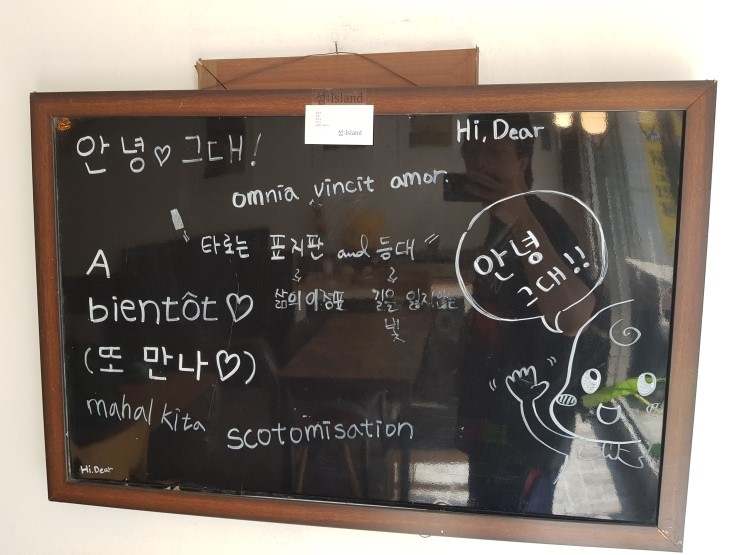 섬:Island
섬:Island
안녕♡그대!
Hi, Dear
omnia vincit amor.
"타로는 표지판 and 등대"
삶의 이정표 길을 잃지않는
빛
안녕
그대!!
A
bientôt♡
(또 만나♡)
mahal kita
scotomisation
Hi.Dear